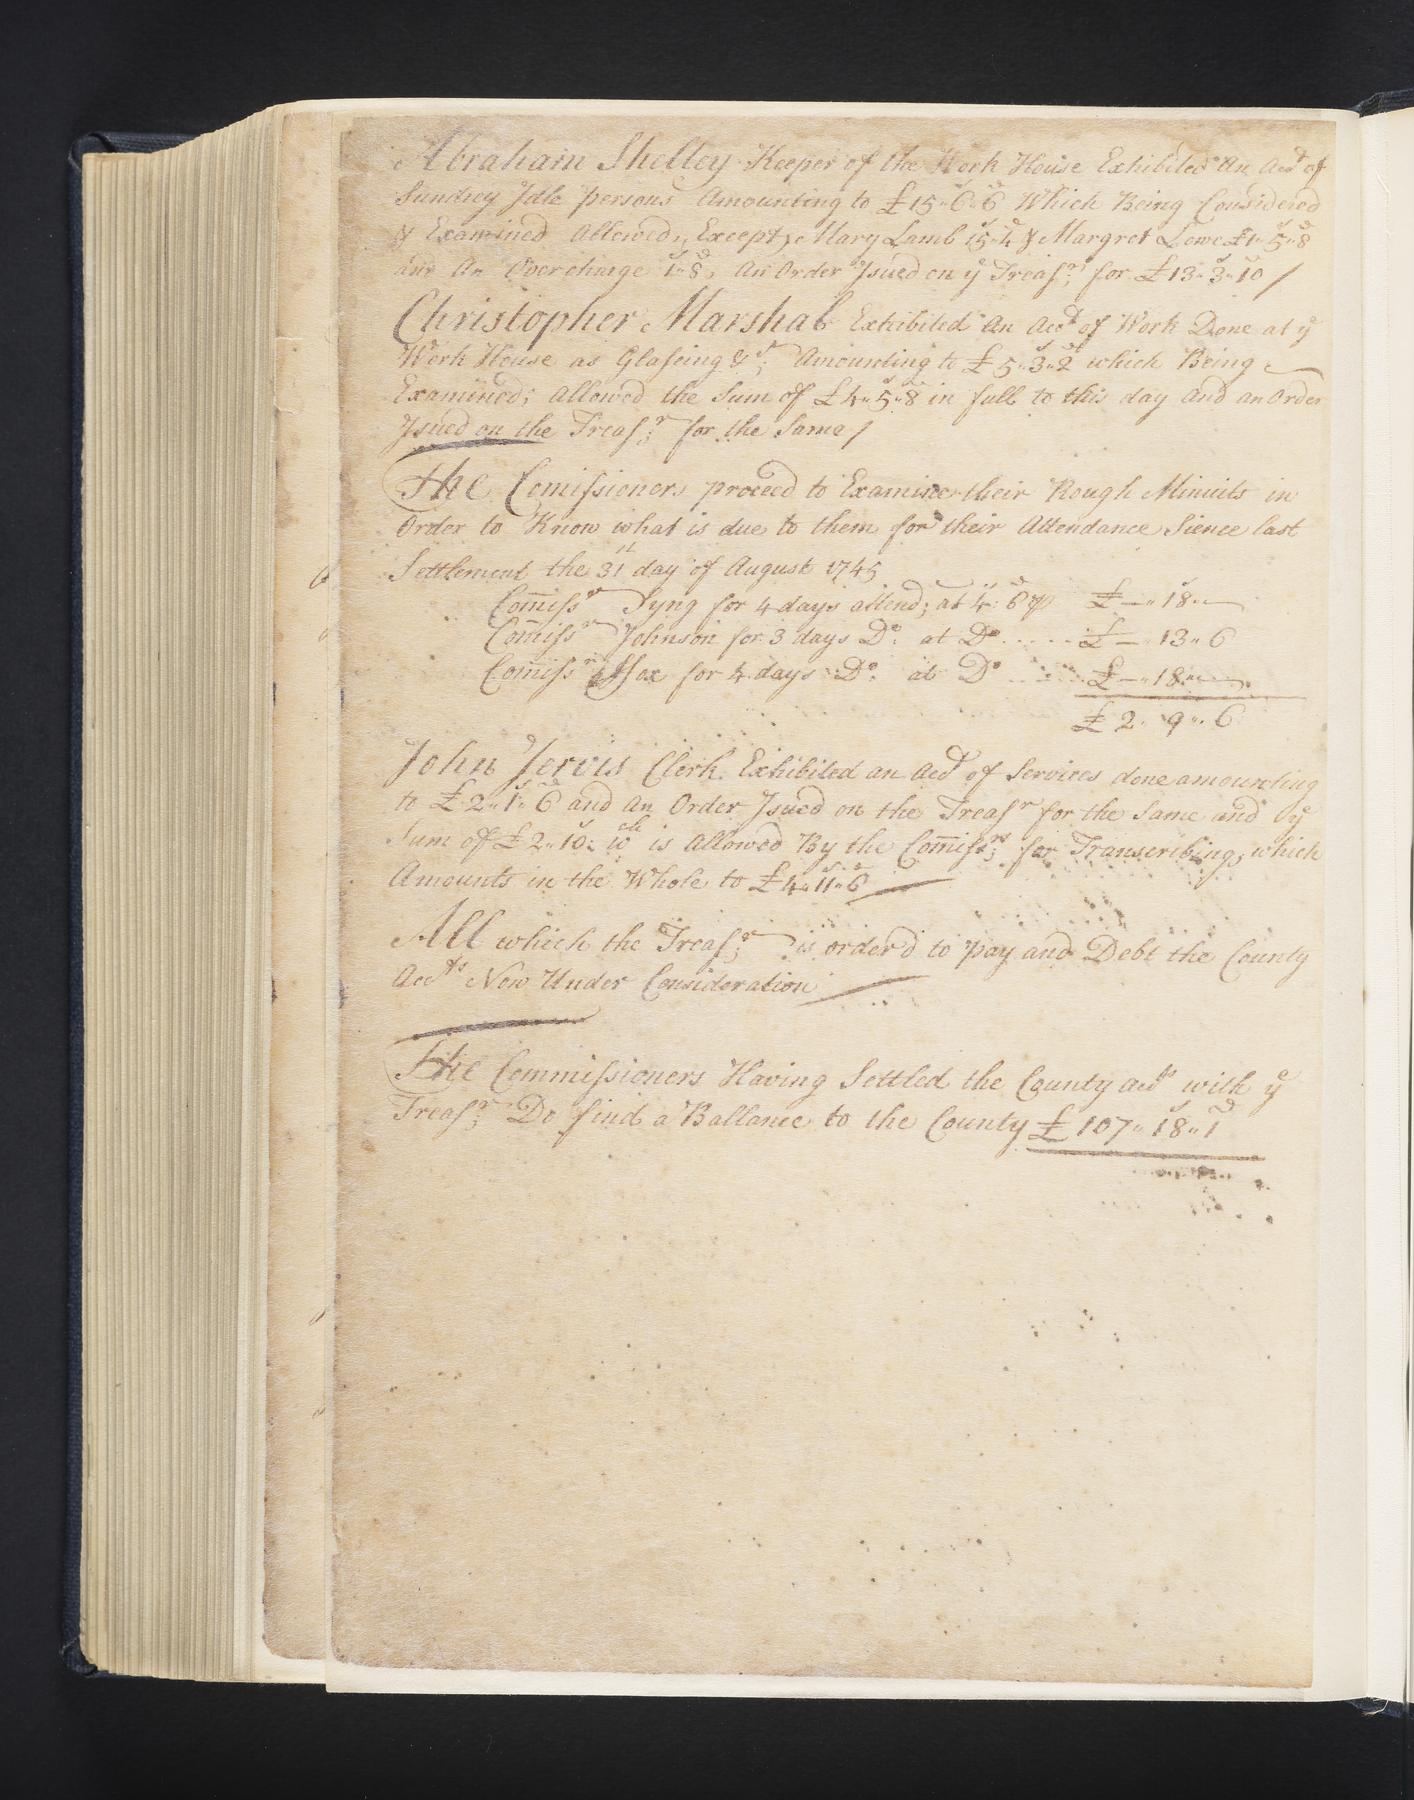 Abraham Shelley Keeper of the Work House Exhibited An Acct of
Sundrey Idle persons Amounting to £15„6„6 Which Being Considered
& Examined Allowed, Except, Mary Lamb 15s„4d & Margret Lowe £1„5„8
and An Overcharge 1s„8d, An Order Isued on ye Treasr; for £13„3„10/
Christopher Marshal Exhibited An Acct of Work Done at ye
Work House as Glaseing &c; Amounting to £5„3„2 which Being
Examined; Allowed the Sum of £4„5„8 in full to this day and an Order
Isued on the Treasr; for the Same/
The Comissioners proceed to Examine their Rough Minuits in
Order to Know what is due to them for their Attendance Sience last
Settlement the 31st day of August 1745
Com̄issr Syng for 4 days attend; at 4s:6d ⅌ £—„18„—
Com̄issr Johnson for 3 days Do: at Do ..... £—13„6
Com̄issr Fox for 4 days Do: at Do ..... £—„18„—
£2„9„6
John Jervis Clerk Exhibited an Acct of Services done amounting
to £2„1„6 and An Order Isued on the Treasr for the Same and ye
Sum of £2„10: wch is Allowed By the Com̄issrs; for Transcribing, which
Amounts in the Whole to £4„11„6
All which the Treasr; is order'd to pay and Debt the County
Accts Now Under Consideration
The Commissioners Having Settled the County Accts with ye
Treasr; Do find a Ballance to the County £107„18„1